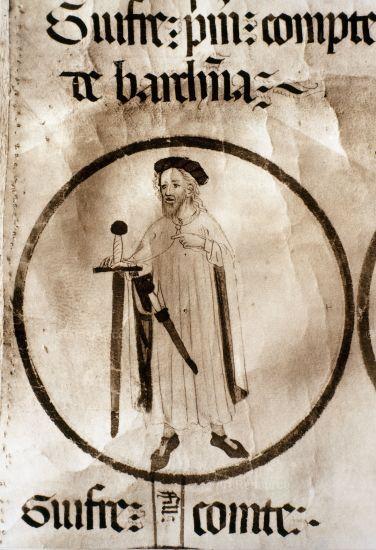 Guifre : pm̄ : compte
de barchn̄a :~
Guifre : comte :~